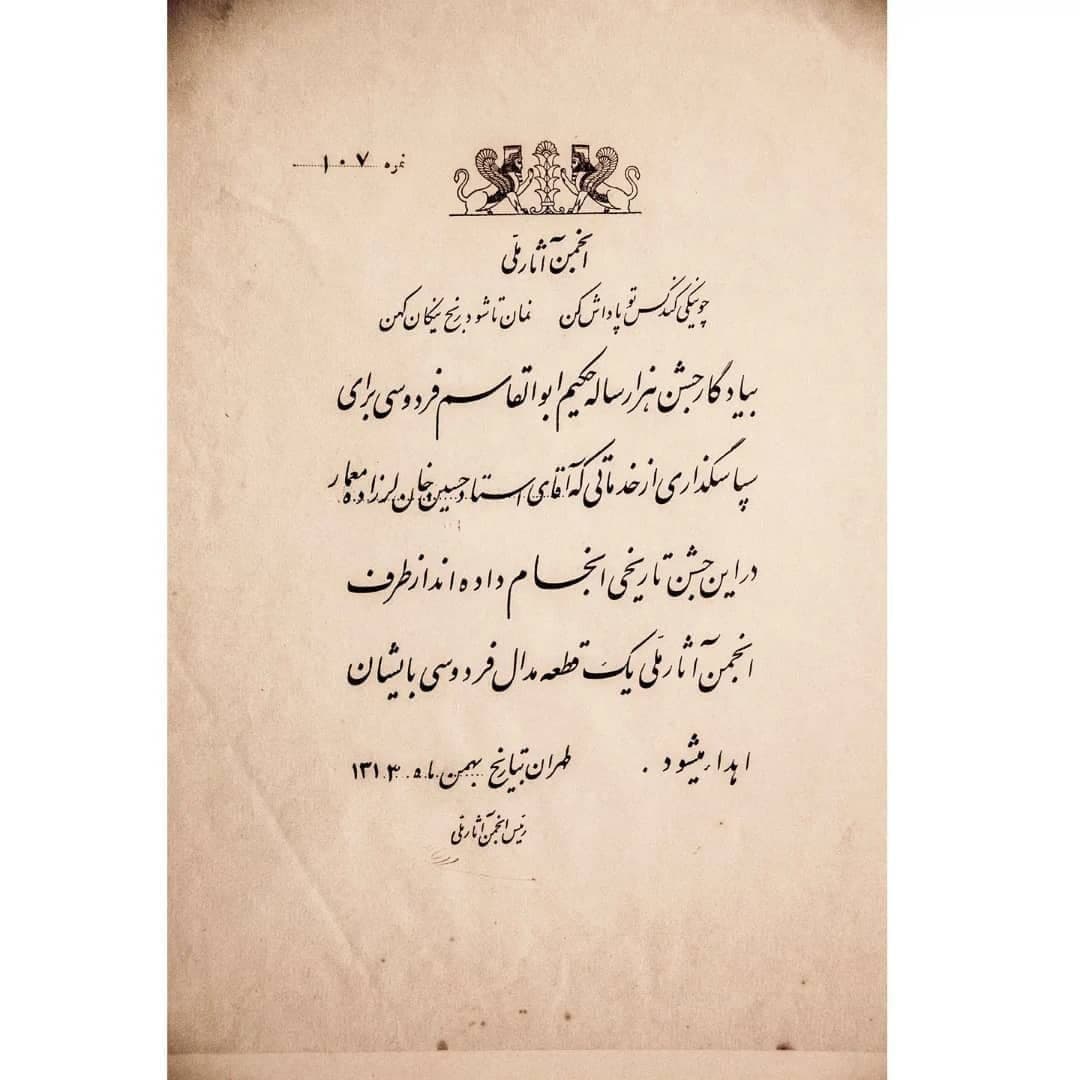 نمره ۱۰۷
انجمن آثار ملّی
چو نیکی کند کس تو پاداش کن نمان تا شود رنج نیکان کهن
بیادگار جشن هزار ساله حکیم ابوالقاسم فردوسی برای
سپاسگذاری از خدماتی که آقای استاد حسین خان لرزاده معمار
در این جشن تاریخی انجام داده اند از طرف
انجمن آثار ملّی یک قطعه مدال فردوسی بایشان
اهداء میشود . طهران بتاریخ بهمن ماه ۱۳۱۳
رئیس انجمن آثار ملّی